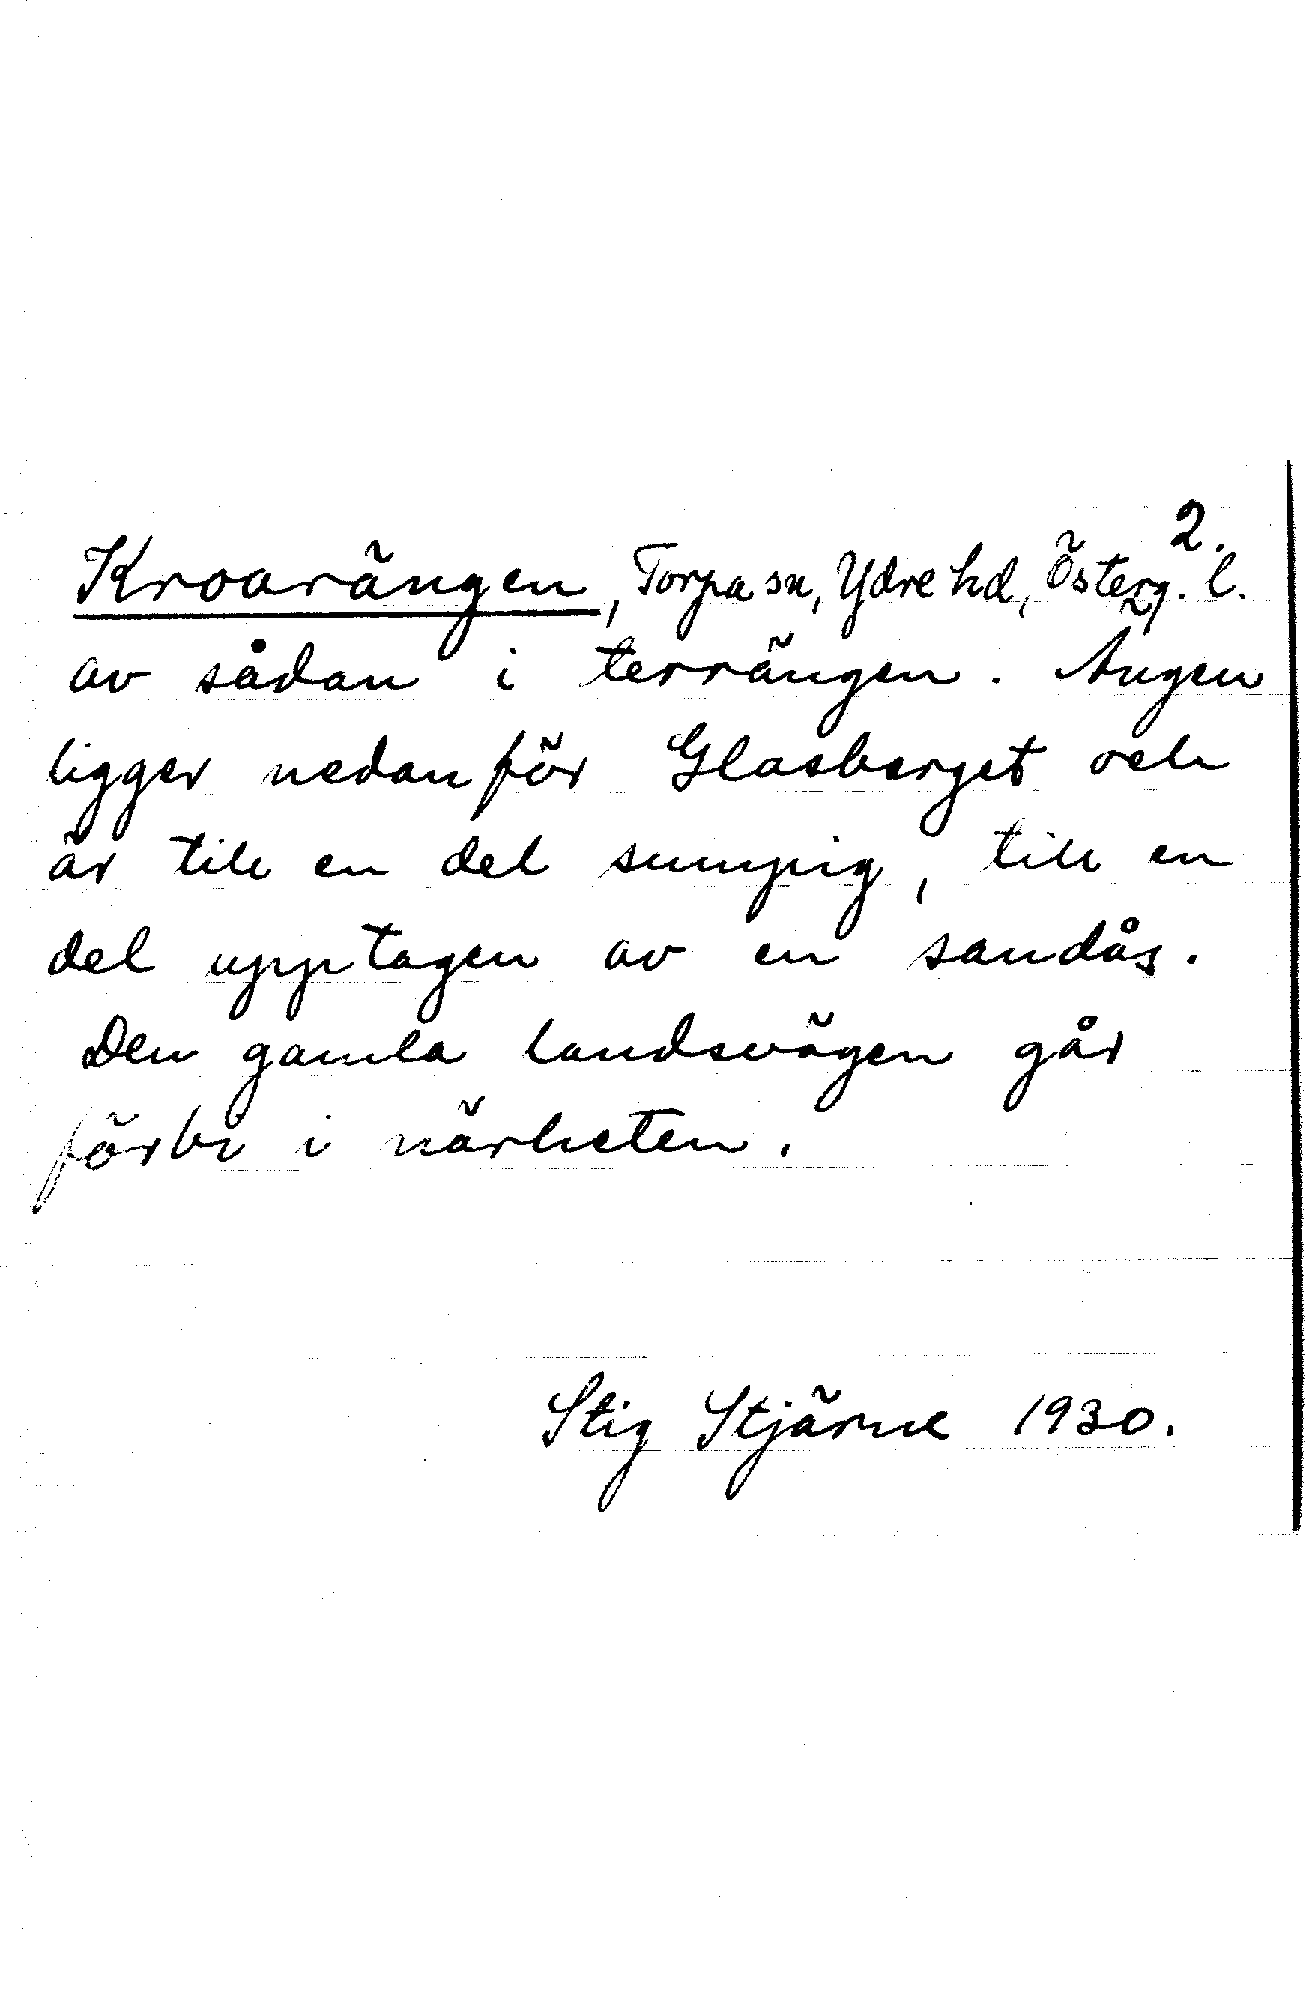 2.
Kroarängen, Torpa sn, Ydre hd, Österg. l.
av sådan i terrängen. Ängen
ligger nedanför Glasberget och
är till en del sumpig, till en
del upptagen av en sandås.
Den gamla landsvägen går
förbi i närheten.
Stig Stjärne 1930.